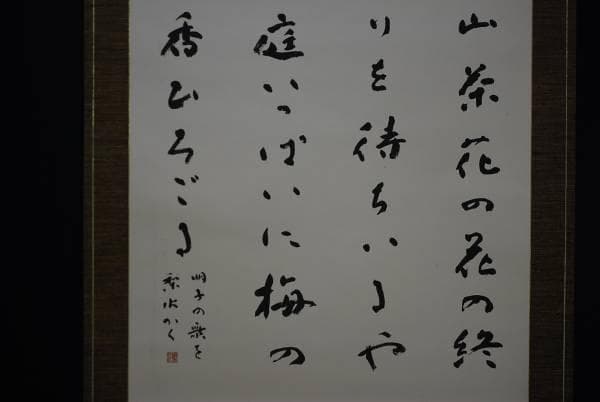 山茶花の花の終
りを待ちいるや
庭いっぱいに梅の
香ひろごる
明子の歌を
梨水かく